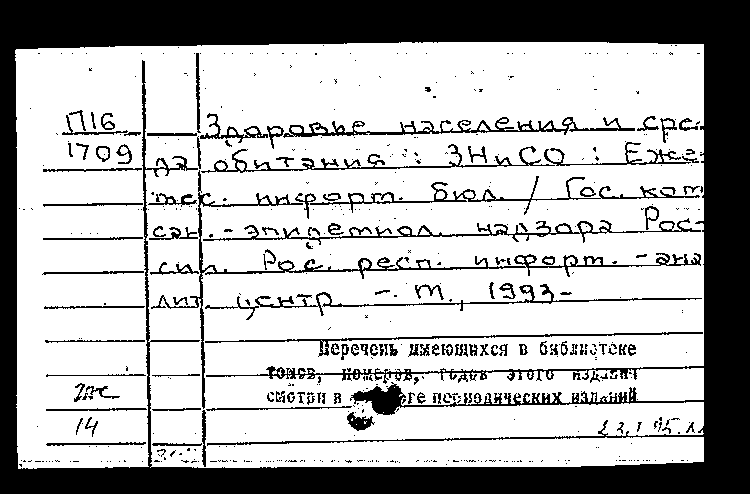 П16 Здоровье населения и сре-
1709 да обитания : ЗНиСО : Еже-
мес. информ. бюл. / Гос. ком
сан.-эпидемиол. надзора Рос-
сии. Рос. респ. информ.-ана
лиз центр. - М., 1993-
Перечень имеющихся в библиотеке
томов, номеров, годов этого издания
смотри в периодических изданий
14
23.1.95